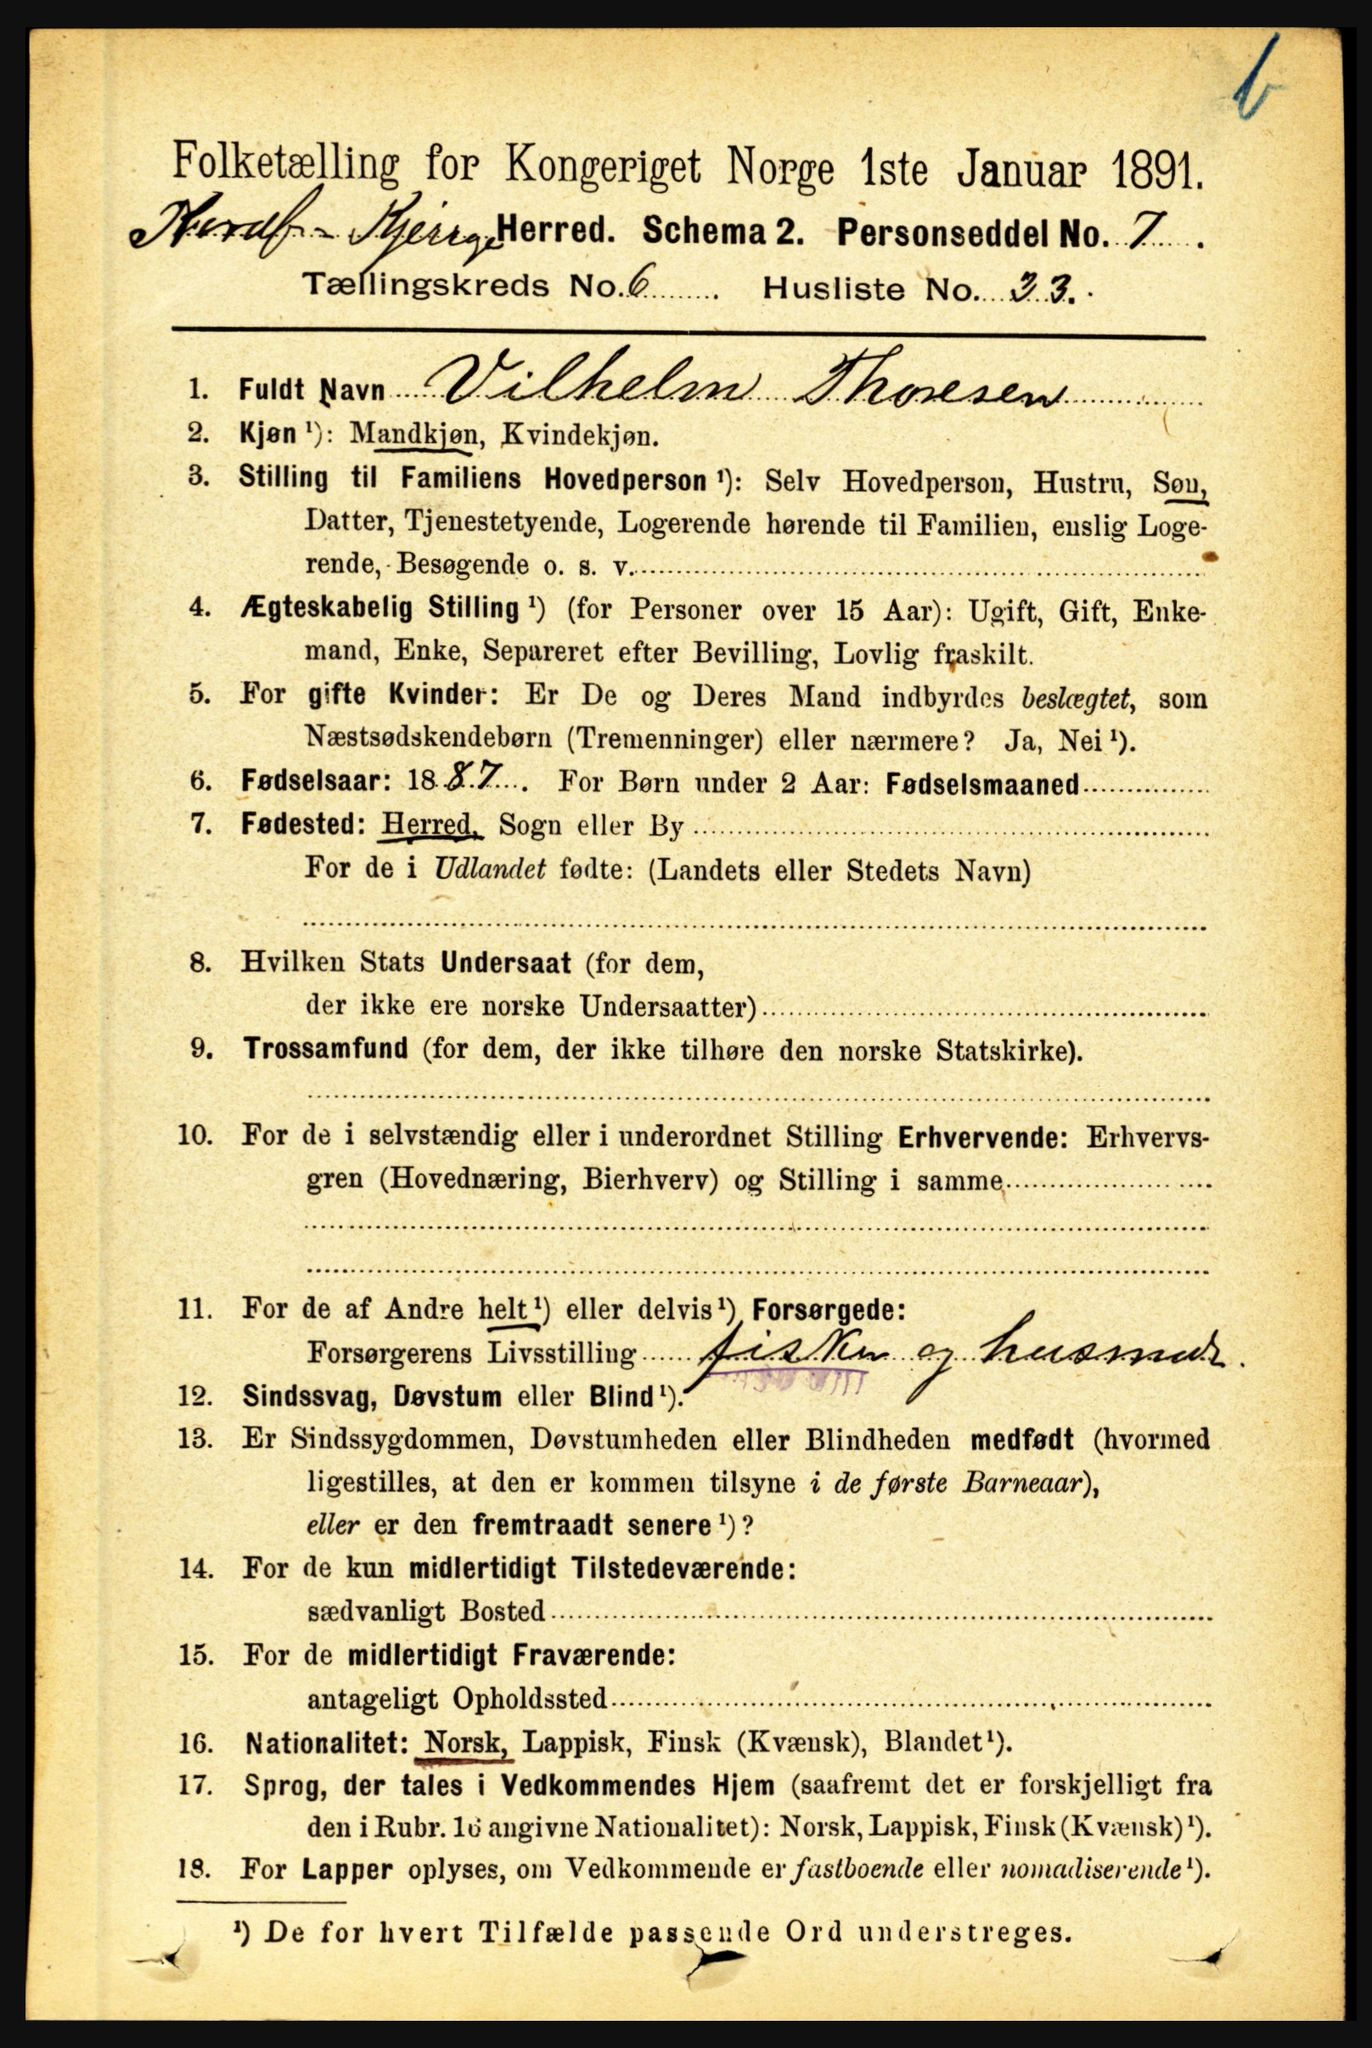 b
Folketælling for Kongeriget Norge 1ste Januar 1891.
Herred. Schema 2. Personseddel No. 7.
Tællingskreds No. 6. Husliste No. 33.
1. Fuldt Navn Vilhelm Thoresen
2. Kjøn ¹): Mandkjøn, Kvindekjøn.
3. Stilling til Familiens Hovedperson ¹): Selv Hovedperson, Hustru, Søn,
Datter, Tjenestetyende, Logerende hørende til Familien, enslig Loge-
rende, Besøgende o. s. v.
4. Ægteskabelig Stilling ¹) (for Personer over 15 Aar): Ugift, Gift, Enke-
mand, Enke, Separeret efter Bevilling, Lovlig fraskilt.
5. For gifte Kvinder: Er De og Deres Mand indbyrdes beslægtet, som
Næstsødskendebørn (Tremenninger) eller nærmere? Ja, Nei ¹).
6. Fødselsaar: 1887. For Børn under 2 Aar: Fødselsmaaned
7. Fødested: Herred, Sogn eller By
For de i Udlandet fødte: (Landets eller Stedets Navn)
8. Hvilken Stats Undersaat (for dem,
der ikke ere norske Undersaatter)
9. Trossamfund (for dem, der ikke tilhøre den norske Statskirke).
10. For de i selvstændig eller i underordnet Stilling Erhvervende: Erhvervs-
gren (Hovednæring, Bierhverv) og Stilling i samme
11. For de af Andre helt ¹) eller delvis ¹) Forsørgede:
Forsørgerens Livsstilling fisker og
12. Sindssvag, Døvstum eller Blind ¹).
13. Er Sindssygdommen, Døvstumheden eller Blindheden medfødt (hvormed
ligestilles, at den er kommen tilsyne i de første Barneaar),
eller er den fremtraadt senere ¹)?
14. For de kun midlertidigt Tilstedeværende:
sædvanligt Bosted
15. For de midlertidigt Fraværende:
antageligt Opholdssted
16. Nationalitet: Norsk, Lappisk, Finsk (Kvænsk), Blandet ¹).
17. Sprog, der tales i Vedkommendes Hjem (saafremt det er forskjelligt fra
den i Rubr. 16 angivne Nationalitet): Norsk, Lappisk, Finsk (Kvænsk) ¹).
18. For Lapper oplyses, om Vedkommende er fastboende eller nomadiserende ¹).
¹) De for hvert Tilfælde passende Ord understreges.